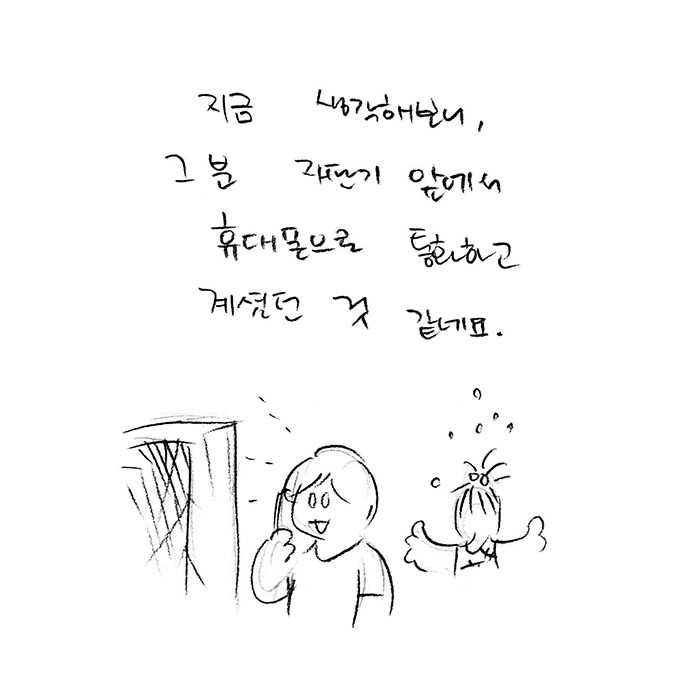 지금 생각해보니,
그 분 자판기 앞에서
휴대폰으로 통화하고
계셨던 것 같네요.